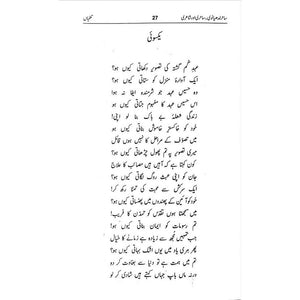 ساحر لدھیانوی، ساحری اور شاعری 27 تلخیاں
یکسوئی
عہد گم گشتہ کی تصویر دکھاتی کیوں ہو؟
ایک آوارۂ منزل کو ستاتی کیوں ہو؟
وہ حسیں عہد جو شرمندۂ ایفا نہ ہوا
اس حسیں عہد کا مفہوم جتاتی کیوں ہو؟
زندگی شعلۂ بے باک بنا لو اپنی!
خود کو خاکستر خاموش بناتی کیوں ہو؟
میں تصوف کے مراحل کا نہیں ہوں قائل
میری تصویر پہ تم پھول چڑھاتی کیوں ہو؟
کون کہتا ہے کہ آہیں ہیں مصائب کا علاج
جان کو اپنی عبث روگ لگاتی کیوں ہو؟
ایک سرکش سے محبت کی تمنا رکھ کر!
خود کو آئین کے پھندوں میں پھنساتی کیوں ہو؟
میں سمجھتا ہوں تقدس کو تمدن کا فریب!
تم رسومات کو ایمان بناتی کیوں ہو؟
جب تمہیں مجھ سے زیادہ ہے زمانے کا خیال
پھر مری یاد میں یوں اشک بہاتی کیوں ہو؟
تم میں ہمت ہے تو دنیا سے بغاوت کر دو
ورنہ ماں باپ جہاں کہتے ہیں شادی کر لو